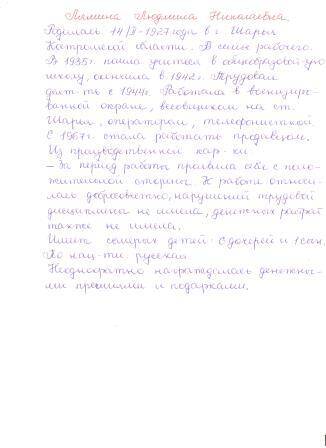 Лямина Людмила Николаевна
Родилась 14/II-1927 года в г. Шарья
Костромской области. В семье рабочего.
В 1935г. пошла учиться в общеобразовательную
школу, окончила в 1942г. Трудовая
деят-ть с 1944г. Работала в военизиро-
ванной охране, весовщиком на ст.
Шарья, оператором, телефонисткой
С 1967г. стала работать продавцом.
Из производственной хар-ки
- За период работы проявила себя с поло-
жительной стороны. К работе относи-
лась добросовестно, нарушений трудовой
дисциплины не имела, денежных растрат
также не имела.
Имеет семерых детей: 6 дочерей и 1 сын.
По нац-ти: русская
Неоднократно награждалась денежны-
ми премиями и подарками.